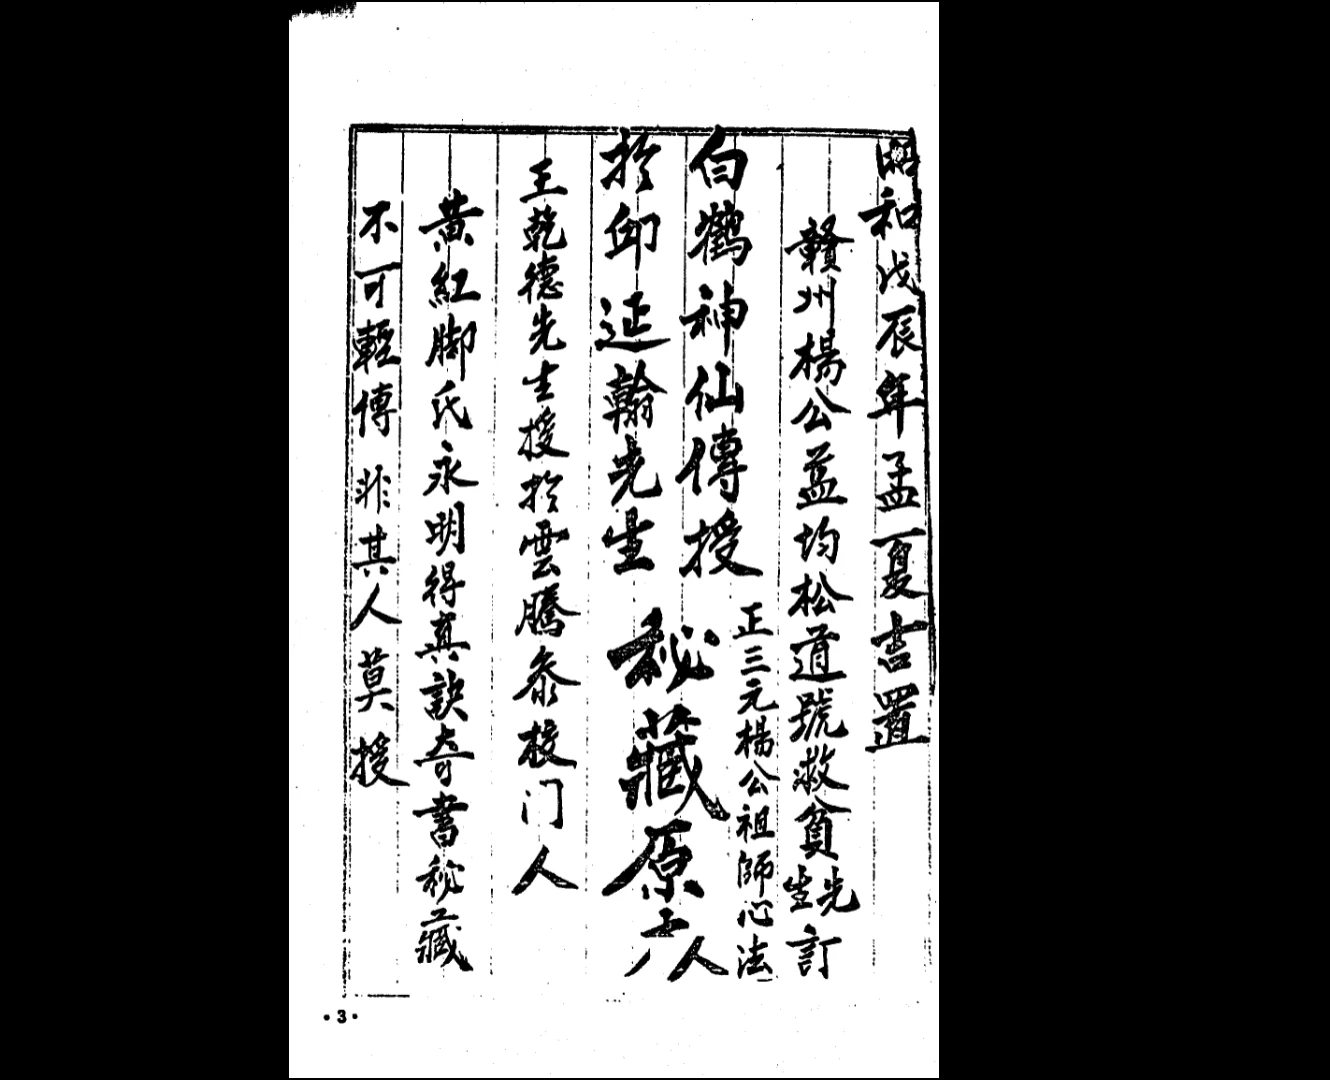 昭和戊辰年孟夏吉置
贛州楊公益均松道號救貧先生訂
正三元楊公祖師心法
白鶴神仙傳授
於邱延翰先生
秘藏原
人
王乾德先生授於雲騰泰校门人
黃紅脚氏永明得真訣奇書秘藏
不可輕傳非其人莫授
·3·